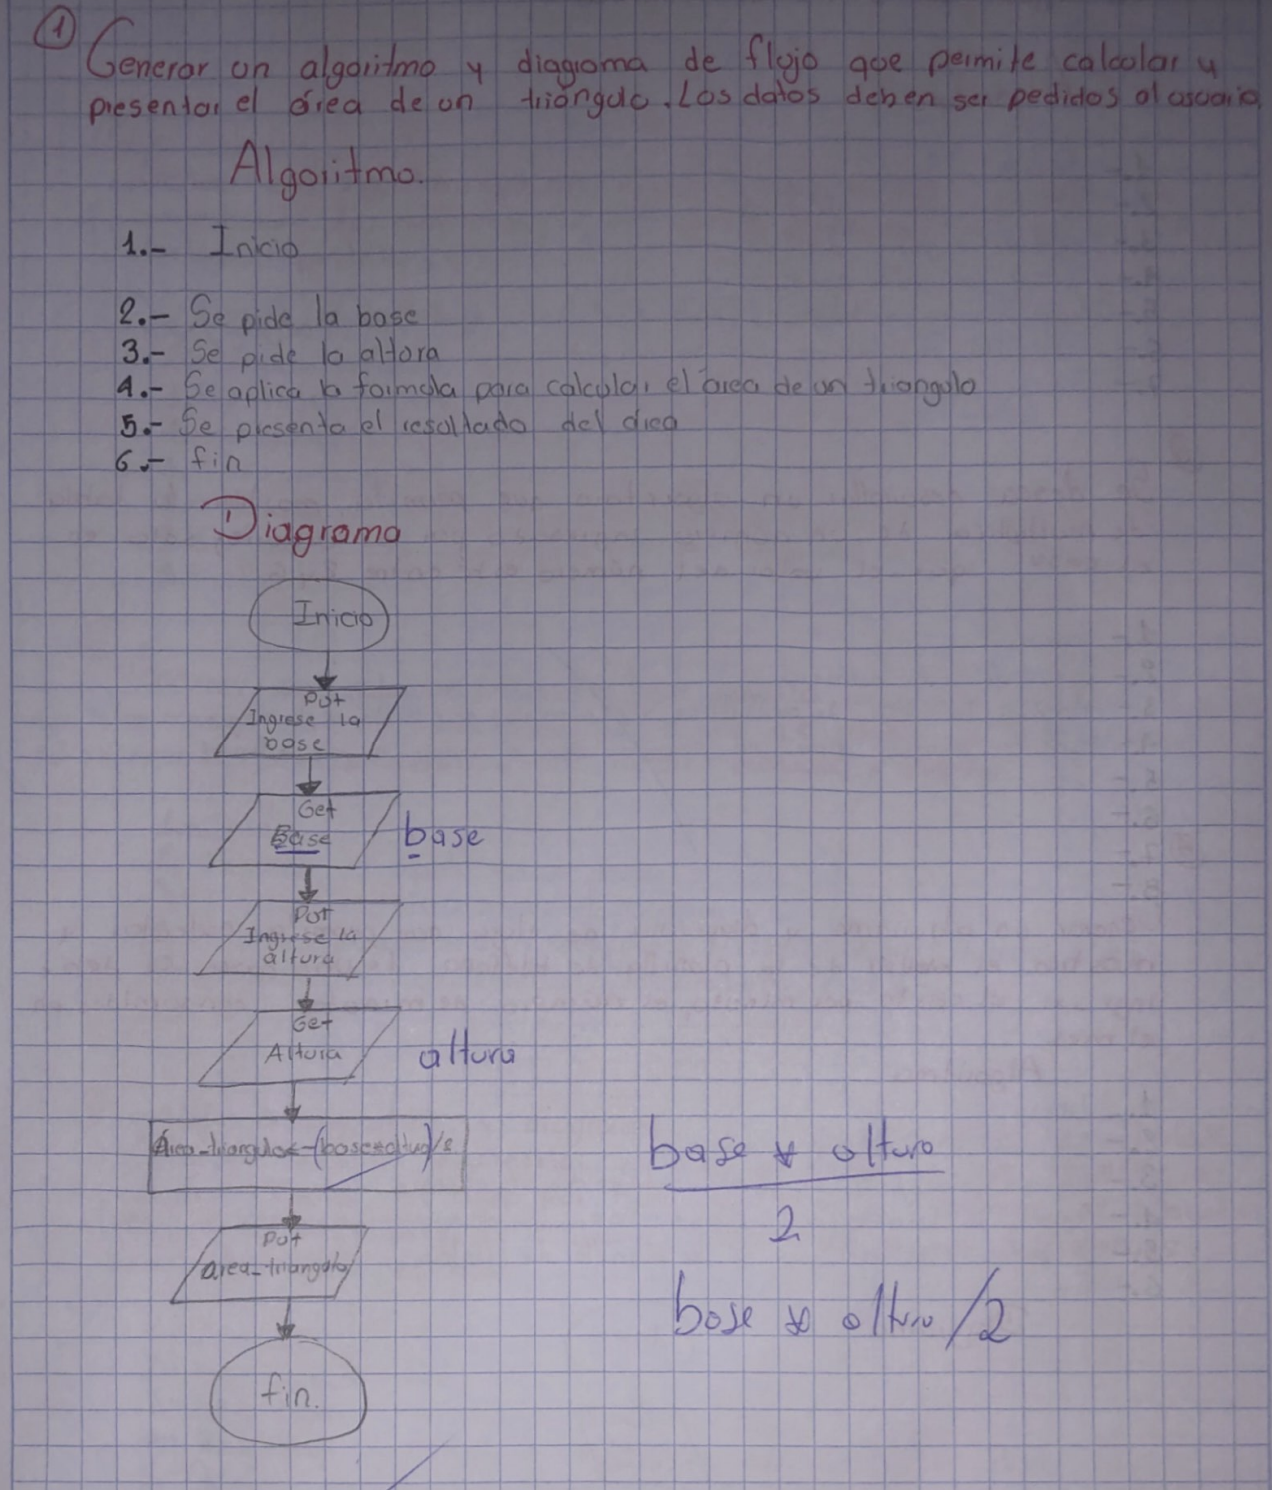 1
Generar un algoritmo y diagrama de flujo que permite calcular y
presentar el área de un triángulo. Los datos deben ser pedidos al usuario
Algoritmo.
1.- Inicio
2.- Se pide la base
3.- Se pide la altura
4.- Se aplica la formula para calcular el área de un triangulo
5.- Se presenta el resultado del área
6.- fin
Diagrama
Inicio
Put
Ingrese la
base
Get
Base base
Put
Ingrese la
altura
Get
Altura altura
Área_triangulo←(base*altura)/2
base * altura
2
Put
area_triangulo
base * altura /2
fin.